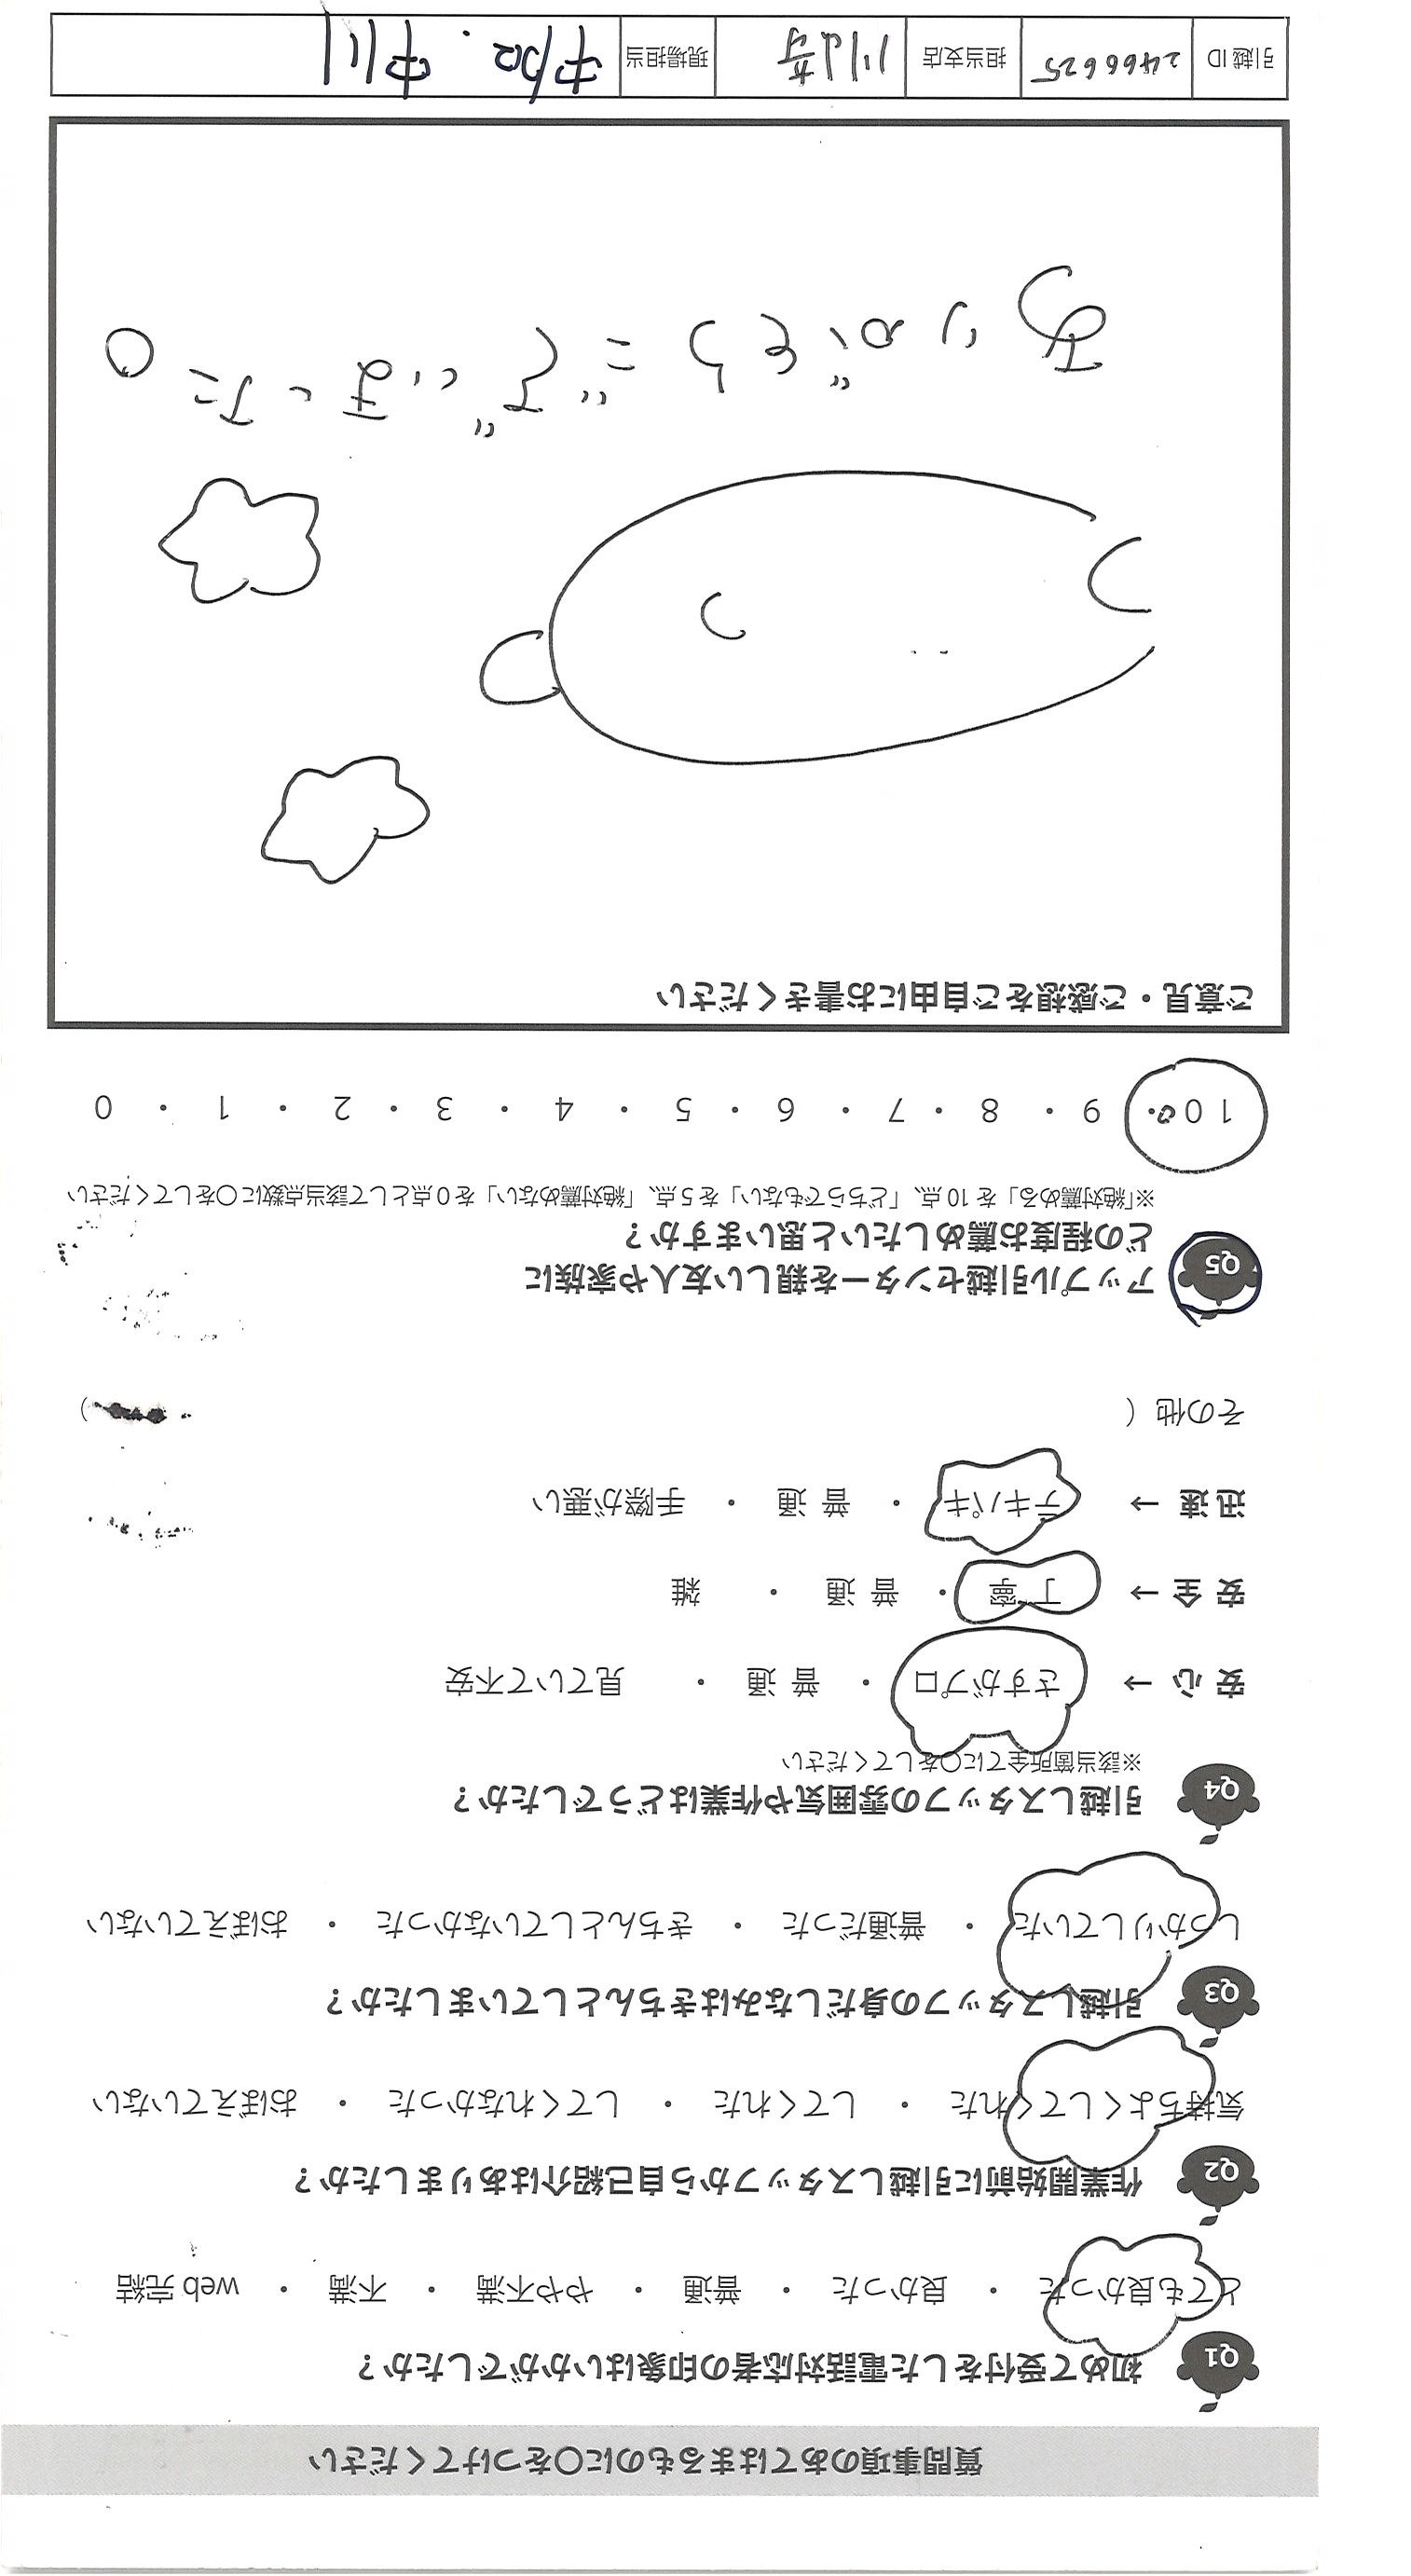 質問事項のあてはまるものに〇をつけてください
Q1 初めて受付をした電話対応者の印象はいかがでしたか？
とても良かった ・ 良かった ・ 普通 ・ やや不満 ・ 不満 ・ web 完結
Q2 作業開始前に引越しスタッフから自己紹介はありましたか？
気持ちよくしてくれた ・ してくれた ・ してくれなかった ・ おぼえていない
Q3 引越しスタッフの身だしなみはきちんとしていましたか？
しっかりしていた ・ 普通だった ・ きちんとしていなかった ・ おぼえていない
Q4 引越しスタッフの雰囲気や作業はどうでしたか？
※該当箇所全てに〇をしてください
安 心 → さすがプロ ・ 普 通 ・ 見ていて不安
安 全 → 丁 寧 ・ 普 通 ・ 雑
迅 速 → テキパキ ・ 普 通 ・ 手際が悪い
その他（ ）
Q5 アップル引越センターを親しい友人や家族に
どの程度お薦めしたいと思いますか？
※「絶対薦める」を 10 点、「どちらでもない」を 5 点、「絶対薦めない」を 0 点として該当点数に〇をしてください
10 ・ 9 ・ 8 ・ 7 ・ 6 ・ 5 ・ 4 ・ 3 ・ 2 ・ 1 ・ 0
ご意見・ご感想をご自由にお書きください
ありがとうございました。
引越 ID 2466625 担当支店 川崎 現場担当 中川